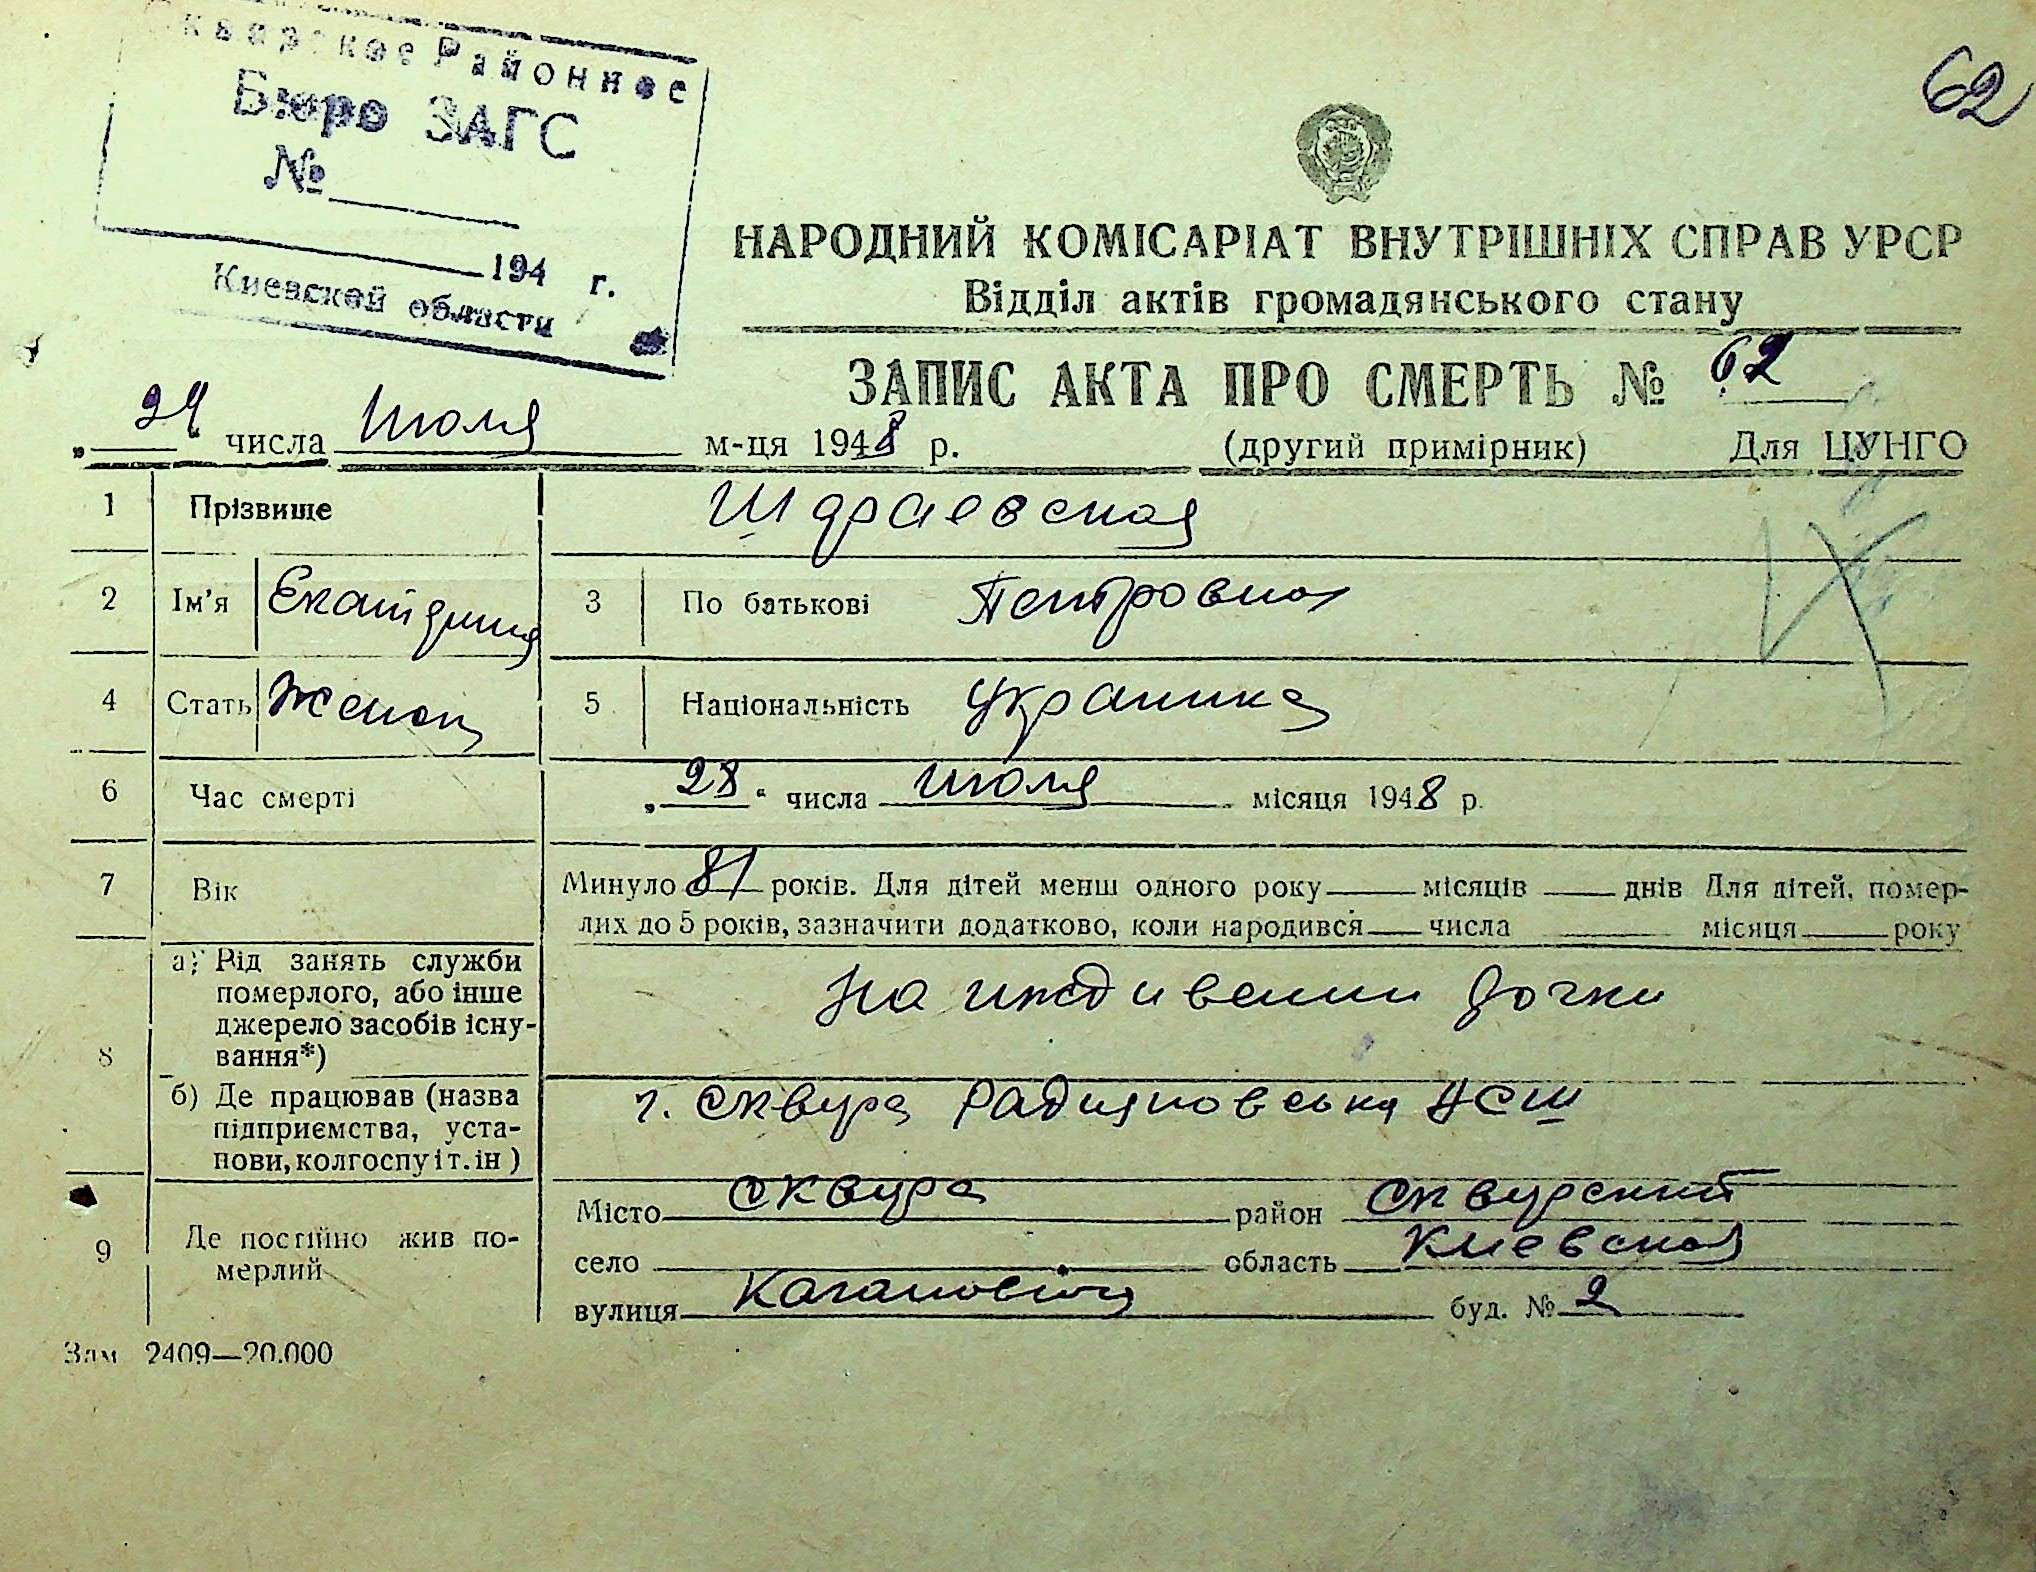 Сквирское Районное
Бюро ЗАГС
№
194 г.
Киевской области
62
НАРОДНИЙ КОМІСАРІАТ ВНУТРІШНІХ СПРАВ УРСР
Відділ актів громадянського стану
ЗАПИС АКТА ПРО СМЕРТЬ № 62
„29“ числа Июля м-ця 1948 р. (другий примірник) Для ЦУНГО
1 Прізвище
2 Ім'я 3 По батькові Петровна
4 Стать Женск 5 Національність Украинка
6 Час смерті „28“ числа Июля місяця 1948 р.
7 Вік Минуло 81 років. Для дітей менш одного року місяців днів Для дітей, помер-
лих до 5 років, зазначити додатково, коли народився числа місяця року
8 а) Рід занять служби
померлого, або інше
джерело засобів існу-
вання*)
На иждивении дочки
б) Де працював (назва
підприємства, уста-
нови, колгоспу і т. ін)
г. Сквира НСШ
9 Де постійно жив по-
мерлий
Місто Сквира район Сквирский
село область Киевская
вулиця Кагановича буд. № 2
Зам 2409—20.000